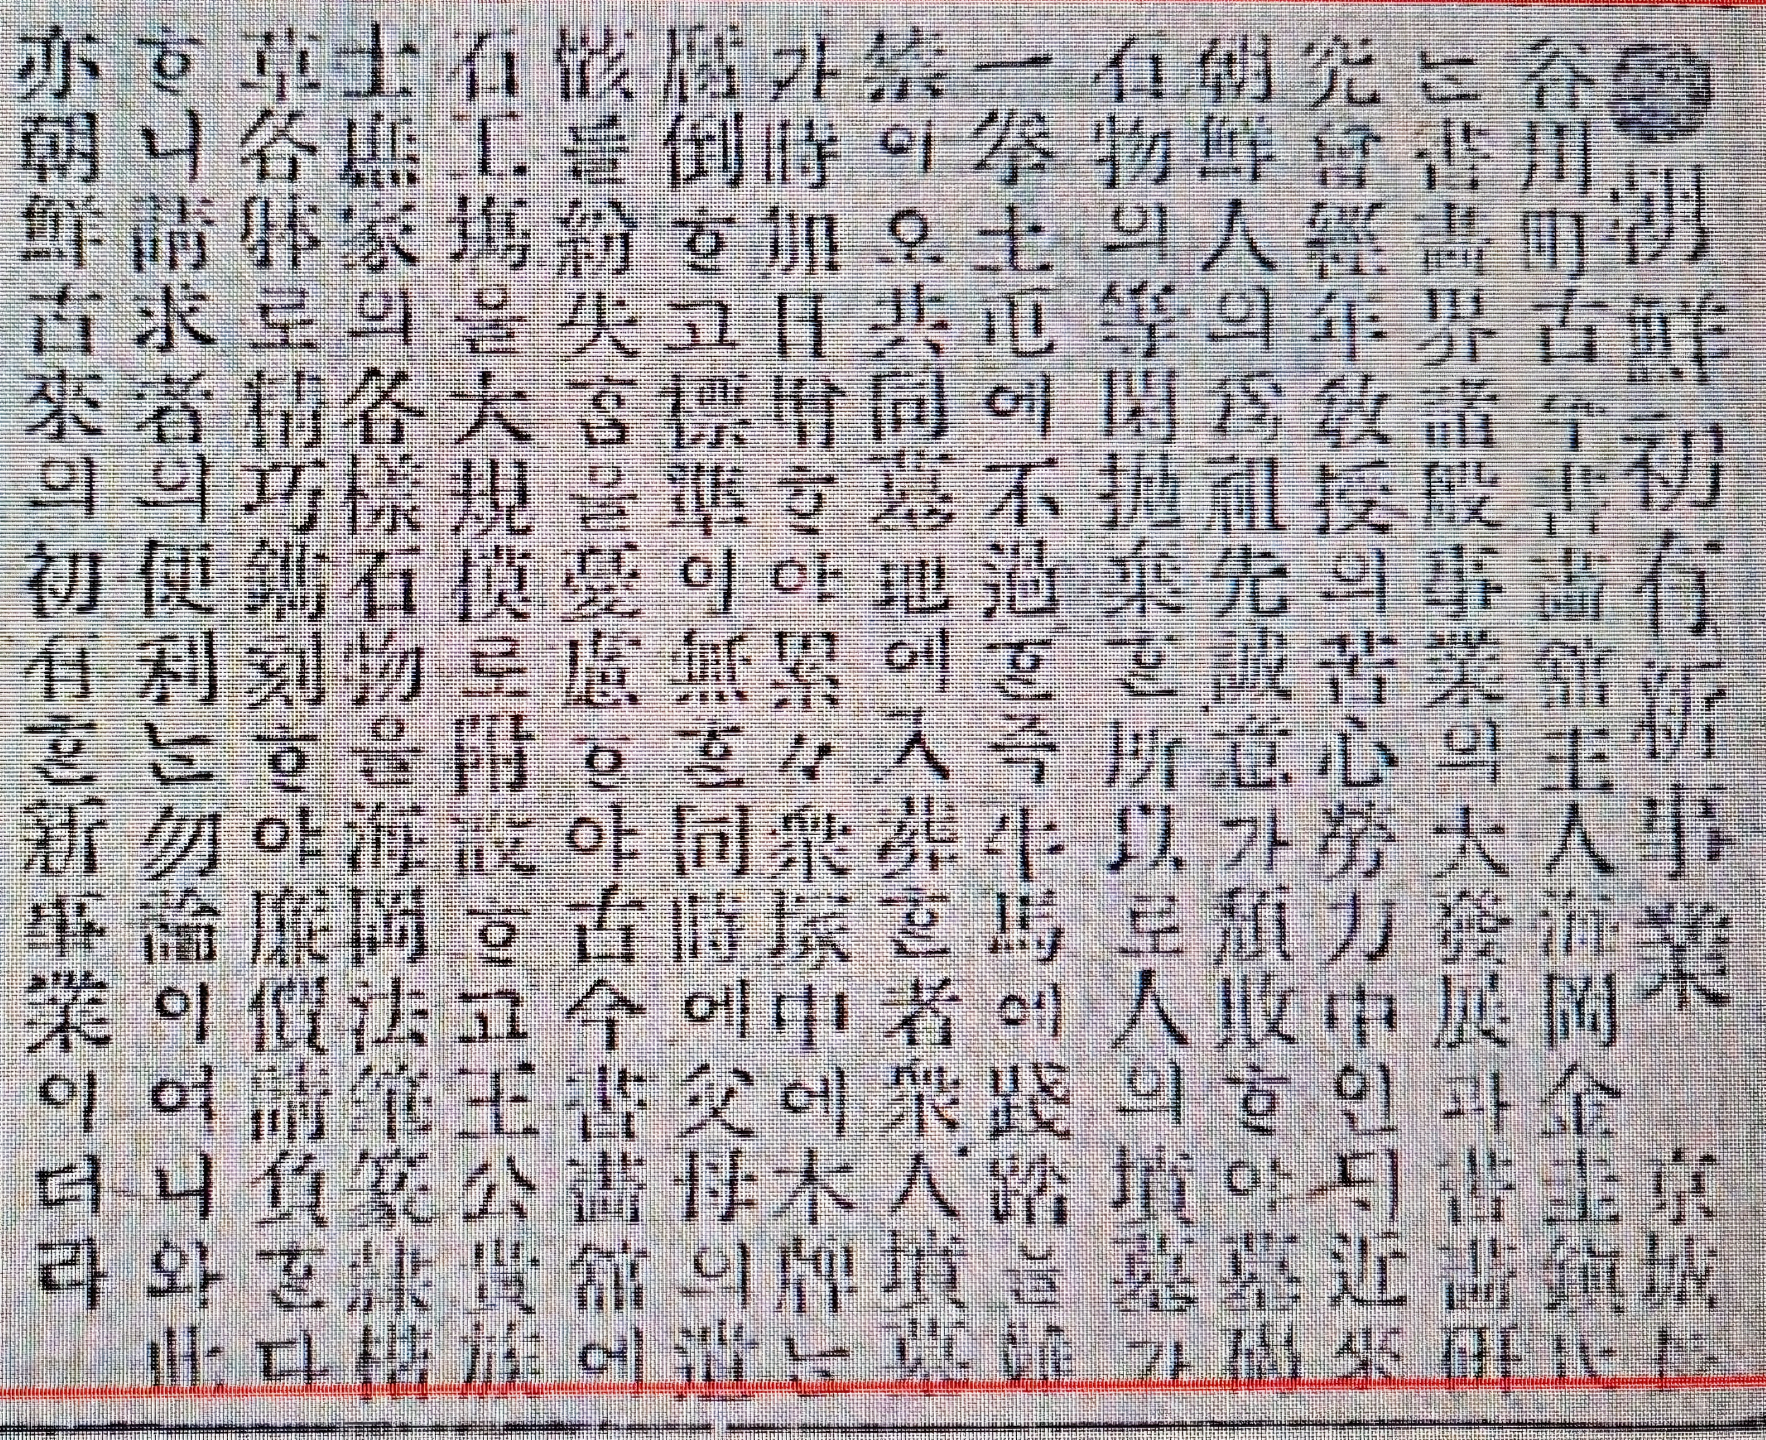 朝鮮初有新事業 京城
谷川町古今書畵舘主人海岡金圭鎭氏
는書畵界諸般事業의大發展과書畵研
究會經年敎授의苦心勞力中인딕近來
朝鮮人의爲祖先誠意가頹敗ᄒᆞ야墓碣
石物의等閑抛棄ᄒᆞᆫ所以로人의墳墓가
一卷土屯에不過ᄒᆞᆫ즉牛馬에踐踏을難
禁이오共同墓地에入葬ᄒᆞᆫ者衆人墳墓
가時加日增ᄒᆞ야累々衆塚中에木牌는
腐倒ᄒᆞ고標準이無ᄒᆞᆫ同時에父母의遺
骸를紛失홈을憂慮ᄒᆞ야古今書畵舘에
石工場을大規模로附設ᄒᆞ고王公貴族
士庶家의各樣石物을海岡法筆篆隸楷
草各體로精巧鐫刻ᄒᆞ야廉價請負ᄒᆞᆫ다
ᄒᆞ니請求者의便利는勿論이여니와此
亦朝鮮古來의初有ᄒᆞᆫ新事業이더라